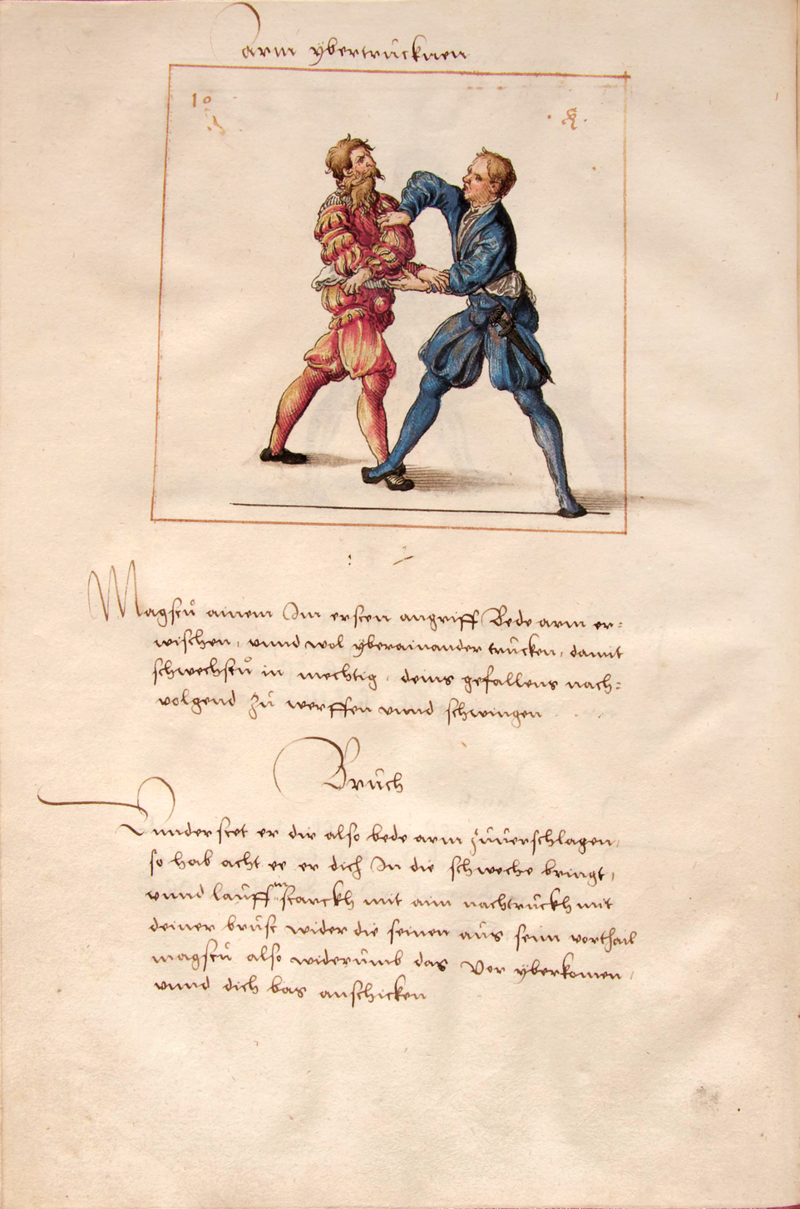 arm ybertrucknen
10
Magstu ainem Im ersten angriff Bede arm er=
wischen, vnnd wol yberainander trucken, damit
schwechstu in mechtig, deins gefallens nach=
volgend zu werffen vnnd schwingen
Bruch
Vnnderstet er dir also bede arm zuuerschlagen,
so hab acht ee er dich In die schweche bringt,
vnnd lauff an starckh mit aim nachtruckh mit
deiner brust wider die seinen aus seim vorthail
magstu also widerumb das Vor yberkomen,
vnnd dich bas anschicken